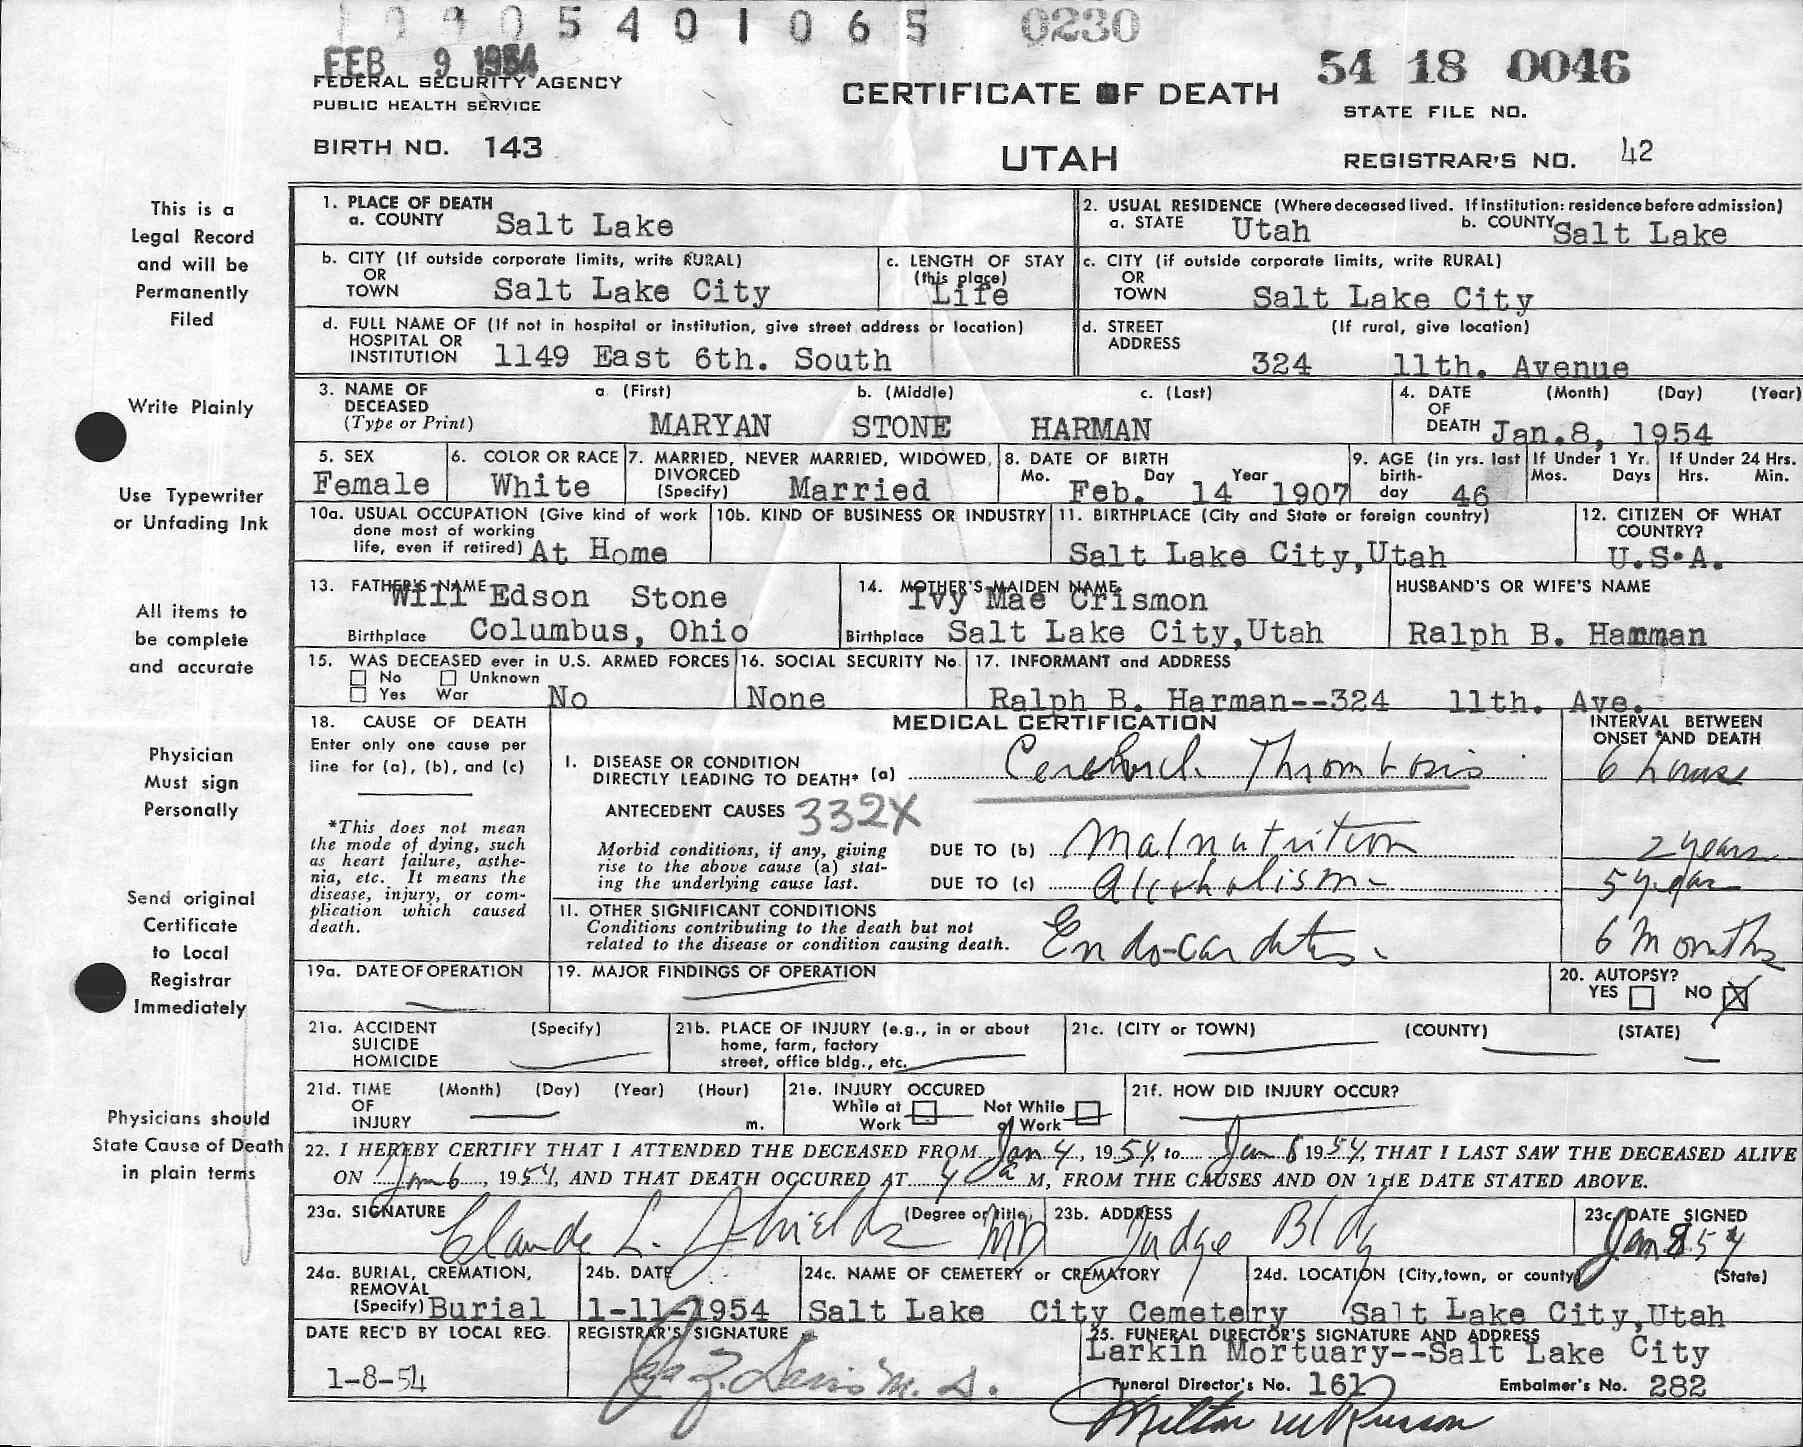 5 4 0 1 0 6 5 0230
FEB 9 1954
54 18 0046
FEDERAL SECURITY AGENCY
PUBLIC HEALTH SERVICE
CERTIFICATE OF DEATH
STATE FILE NO.
BIRTH NO. 143
UTAH
REGISTRAR'S NO. 42
This is a
Legal Record
and will be
Permanently
Filed
Write Plainly
Use Typewriter
or Unfading Ink
All items to
be complete
and accurate
Physician
Must sign
Personally
Send original
Certificate
to Local
Registrar
Immediately
Physicians should
State Cause of Death
in plain terms
1. PLACE OF DEATH
a. COUNTY Salt Lake
2. USUAL RESIDENCE (Where deceased lived. If institution: residence before admission)
a. STATE Utah b. COUNTY Salt Lake
b. CITY (If outside corporate limits, write RURAL)
OR
TOWN Salt Lake City
c. LENGTH OF STAY
(this place)
Life
c. CITY (if outside corporate limits, write RURAL)
OR
TOWN Salt Lake City
d. FULL NAME OF (If not in hospital or institution, give street address or location)
HOSPITAL OR
INSTITUTION 1149 East 6th. South
d. STREET (If rural, give location)
ADDRESS
324 11th. Avenue
3. NAME OF a (First) b. (Middle) c. (Last)
DECEASED
(Type or Print) MARYAN STONE HARMAN
4. DATE (Month) (Day) (Year)
OF
DEATH Jan.8, 1954
5. SEX
Female
6. COLOR OR RACE
White
7. MARRIED, NEVER MARRIED, WIDOWED,
DIVORCED
(Specify) Married
8. DATE OF BIRTH
Mo. Day Year
Feb. 14 1907
9. AGE (in yrs. last
birth-
day 46
If Under 1 Yr.
Mos. Days
If Under 24 Hrs.
Hrs. Min.
10a. USUAL OCCUPATION (Give kind of work
done most of working
life, even if retired) At Home
10b. KIND OF BUSINESS OR INDUSTRY
11. BIRTHPLACE (City and State or foreign country)
Salt Lake City,Utah
12. CITIZEN OF WHAT
COUNTRY?
U.S.A.
13. FATHER'S NAME Will Edson Stone
Birthplace Columbus, Ohio
14. MOTHER'S MAIDEN NAME Ivy Mae Crismon
Birthplace Salt Lake City,Utah
HUSBAND'S OR WIFE'S NAME
Ralph B. Harman
15. WAS DECEASED ever in U.S. ARMED FORCES
No Unknown
Yes War No
16. SOCIAL SECURITY No.
None
17. INFORMANT and ADDRESS
Ralph B. Harman--324 11th. Ave.
18. CAUSE OF DEATH
Enter only one cause per
line for (a), (b), and (c)
*This does not mean
the mode of dying, such
as heart failure, asthe-
nia, etc. It means the
disease, injury, or com-
plication which caused
death.
MEDICAL CERTIFICATION
INTERVAL BETWEEN
ONSET AND DEATH
I. DISEASE OR CONDITION
DIRECTLY LEADING TO DEATH* (a) Cerebral Thrombosis 6 hours
ANTECEDENT CAUSES 332X
Morbid conditions, if any, giving
rise to the above cause (a) stat-
ing the underlying cause last.
DUE TO (b) Malnutrition 2 years
DUE TO (c) Alcoholism 5 year
II. OTHER SIGNIFICANT CONDITIONS
Conditions contributing to the death but not
related to the disease or condition causing death.
Endo-carditis. 6 Months
19a. DATE OF OPERATION
19. MAJOR FINDINGS OF OPERATION
20. AUTOPSY?
YES NO X
21a. ACCIDENT (Specify)
SUICIDE
HOMICIDE
21b. PLACE OF INJURY (e.g., in or about
home, farm, factory
street, office bldg., etc.
21c. (CITY or TOWN) (COUNTY) (STATE)
21d. TIME (Month) (Day) (Year) (Hour)
OF
INJURY m.
21e. INJURY OCCURED
While at Work Not While at Work
21f. HOW DID INJURY OCCUR?
22. I HEREBY CERTIFY THAT I ATTENDED THE DECEASED FROM Jan 4, 1954, to Jan 6 1954, THAT I LAST SAW THE DECEASED ALIVE
ON Jan 6, 1954, AND THAT DEATH OCCURED AT 4 a M, FROM THE CAUSES AND ON THE DATE STATED ABOVE.
23a. SIGNATURE (Degree or title)
Claude L. Shields MD
23b. ADDRESS
Judge Bldg
23c. DATE SIGNED
Jan 8 54
24a. BURIAL, CREMATION,
REMOVAL
(Specify) Burial
24b. DATE
1-11-1954
24c. NAME OF CEMETERY or CREMATORY
Salt Lake City Cemetery
24d. LOCATION (City,town, or county) (State)
Salt Lake City,Utah
DATE REC'D BY LOCAL REG.
1-8-54
REGISTRAR'S SIGNATURE
M. D.
25. FUNERAL DIRECTOR'S SIGNATURE AND ADDRESS
Larkin Mortuary--Salt Lake City
Funeral Director's No. 161 Embalmer's No. 282